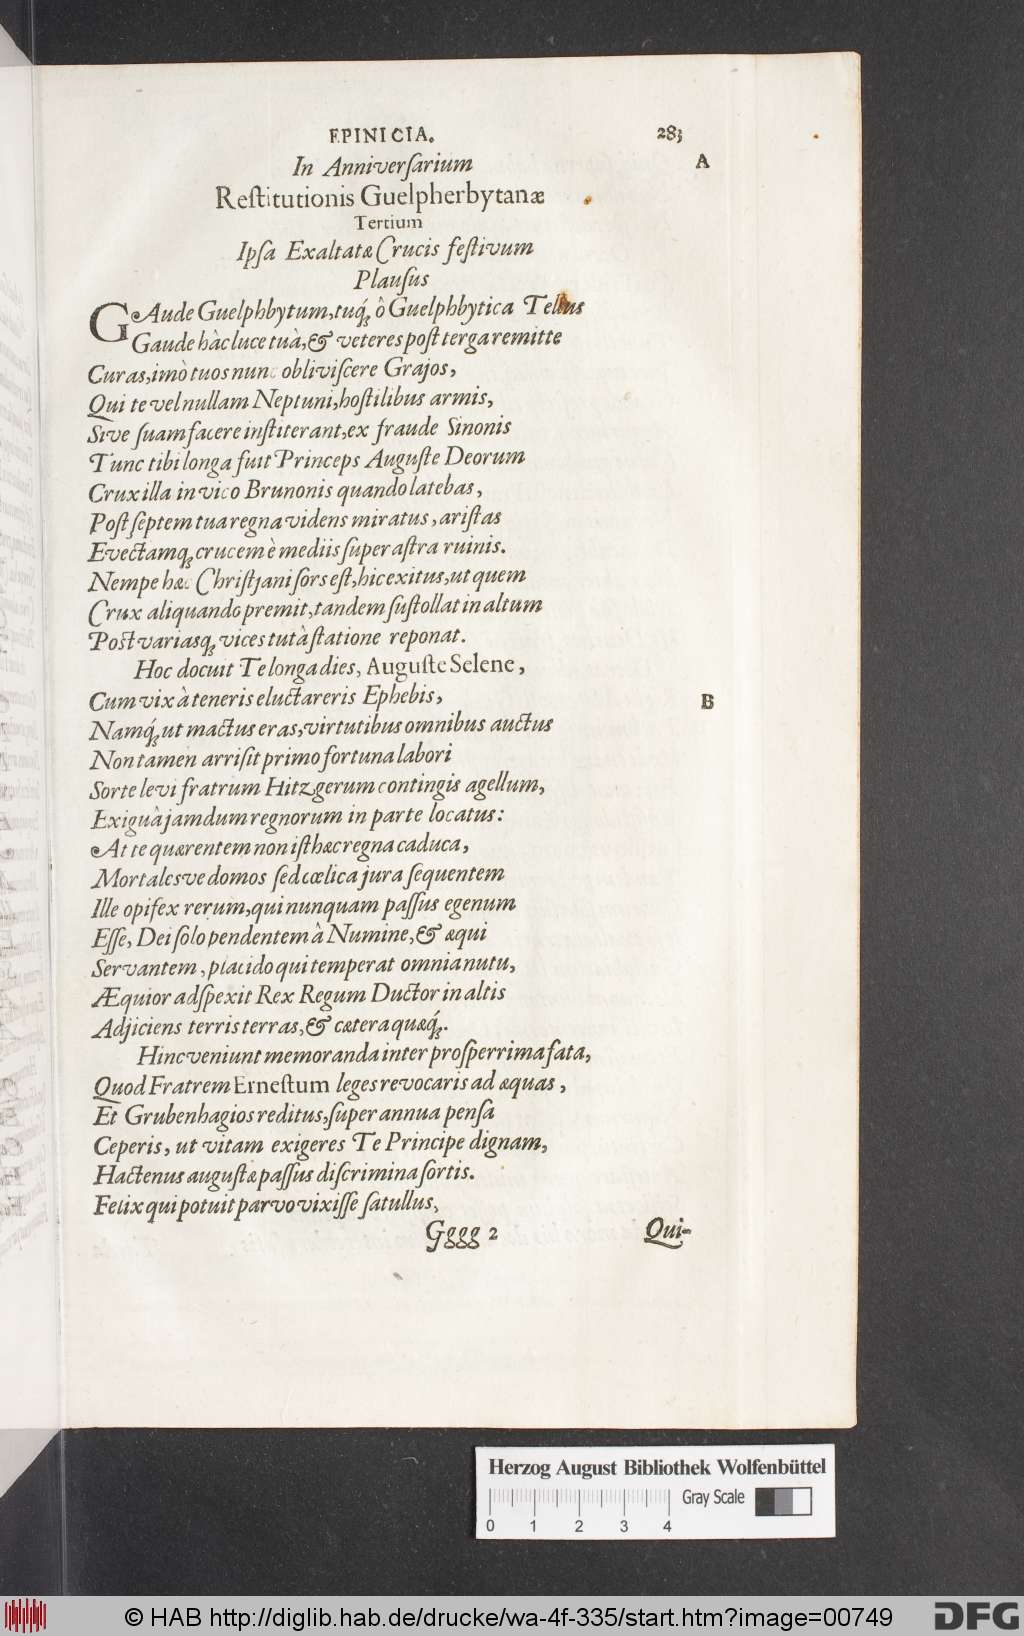 EPINICIA. 283
In Anniversarium
A
Reſtitutionis Guelpherbytanæ
Tertium
Ipſa Exaltatæ Crucis feſtivum
Plauſus
GAude Guelphbytum, tuq́ꝫ ô Guelphbytica Tellus
Gaude hàc luce tuà, & veteres poſt terga remitte
Curas, imò tuos nunc obliviſcere Grajos,
Qui te vel nullam Neptuni, hoſtilibus armis,
Sive ſuam facere inſtiterant, ex fraude Sinonis
Tunc tibi longa fuit Princeps Auguſte Deorum
Crux illa in vico Brunonis quando latebas,
Poſt ſeptem tua regna videns miratus, ariſtas
Evectamqꝫ crucem è mediis ſuper aſtra ruinis.
Nempe hæc Chriſtjani ſors eſt, hic exitus, ut quem
Crux aliquando premit, tandem ſuſtollat in altum
Poſt variasqꝫ vices tutà ſtatione reponat.
Hoc docuit Te longa dies, Auguſte Selene,
Cum vix à teneris eluctareris Ephebis,
B
Namq́ꝫ ut mactus eras, virtutibus omnibus auctus
Non tamen arriſit primo fortuna labori
Sorte levi fratrum Hitzgerum contingis agellum,
Exiguà jamdum regnorum in parte locatus:
At te quærentem non iſthæc regna caduca,
Mortalesve domos ſed cœlica jura ſequentem
Ille opifex rerum, qui nunquam paſſus egenum
Eſſe, Dei ſolo pendentem à Numine, & æqui
Servantem, placido qui temperat omnia nutu,
Æquior adſpexit Rex Regum Ductor in altis
Adjiciens terris terras, & cætera quæq́ꝫ.
Hinc veniunt memoranda inter proſperrima fata,
Quod Fratrem Erneſtum leges revocaris ad æquas,
Et Grubenhagios reditus, ſuper annua penſa
Ceperis, ut vitam exigeres Te Principe dignam,
Hactenus auguſtæ paſſus diſcrimina ſortis.
Felix qui potuit parvo vixiſſe ſatullus,
Gggg 2 Qui-
Herzog August Bibliothek Wolfenbüttel
Gray Scale
0 1 2 3 4
© HAB http://diglib.hab.de/drucke/wa-4f-335/start.htm?image=00749
DFG